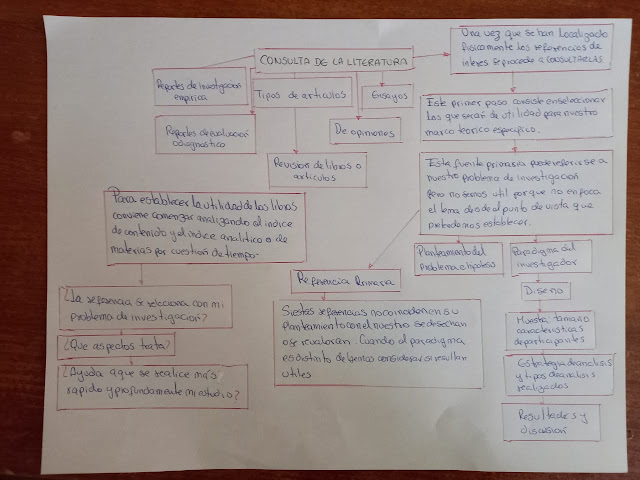 CONSULTA DE LA LITERATURA
Una vez que se han localizado
fisicamente las referencias de
interes se procede a CONSULTARLAS
Reportes de investigacion
empirica
Tipos de articulos
Ensayos
Reportes de evaluación
o diagnostico
De opiniones
Revision de libros o
articulos
Este primer paso consiste en seleccionar
las que serán de utilidad para nuestro
marco teorico especifico.
Esta fuente primaria puede referirse a
nuestro problema de investigación
pero no sernos util por que no enfoca
el tema desde el punto de vista que
pretendemos establecer.
Para establecer la utilidad de los libros
conviene comenzar analizando el indice
de contenido y el indice analitico o de
materias por cuestión de tiempo.
¿La referencia se relaciona con mi
problema de investigación?
¿Que aspectos trata?
¿Ayuda a que se realice más
rapido y profundamente mi estudio?
Referencia Primaria
Si estas referencias no coinciden en su
planteamiento con el nuestro se desechan
o se revaloran. Cuando el paradigma
es distinto de considerar si resultan
utiles
Planteamiento del
problema e hipotesis
Paradigma del
investigador
Diseño
Muestra, tamaño
caracteristicas
de participantes
Estrategia de analisis
y tipos de analisis
realizados
Resultados y
discusión